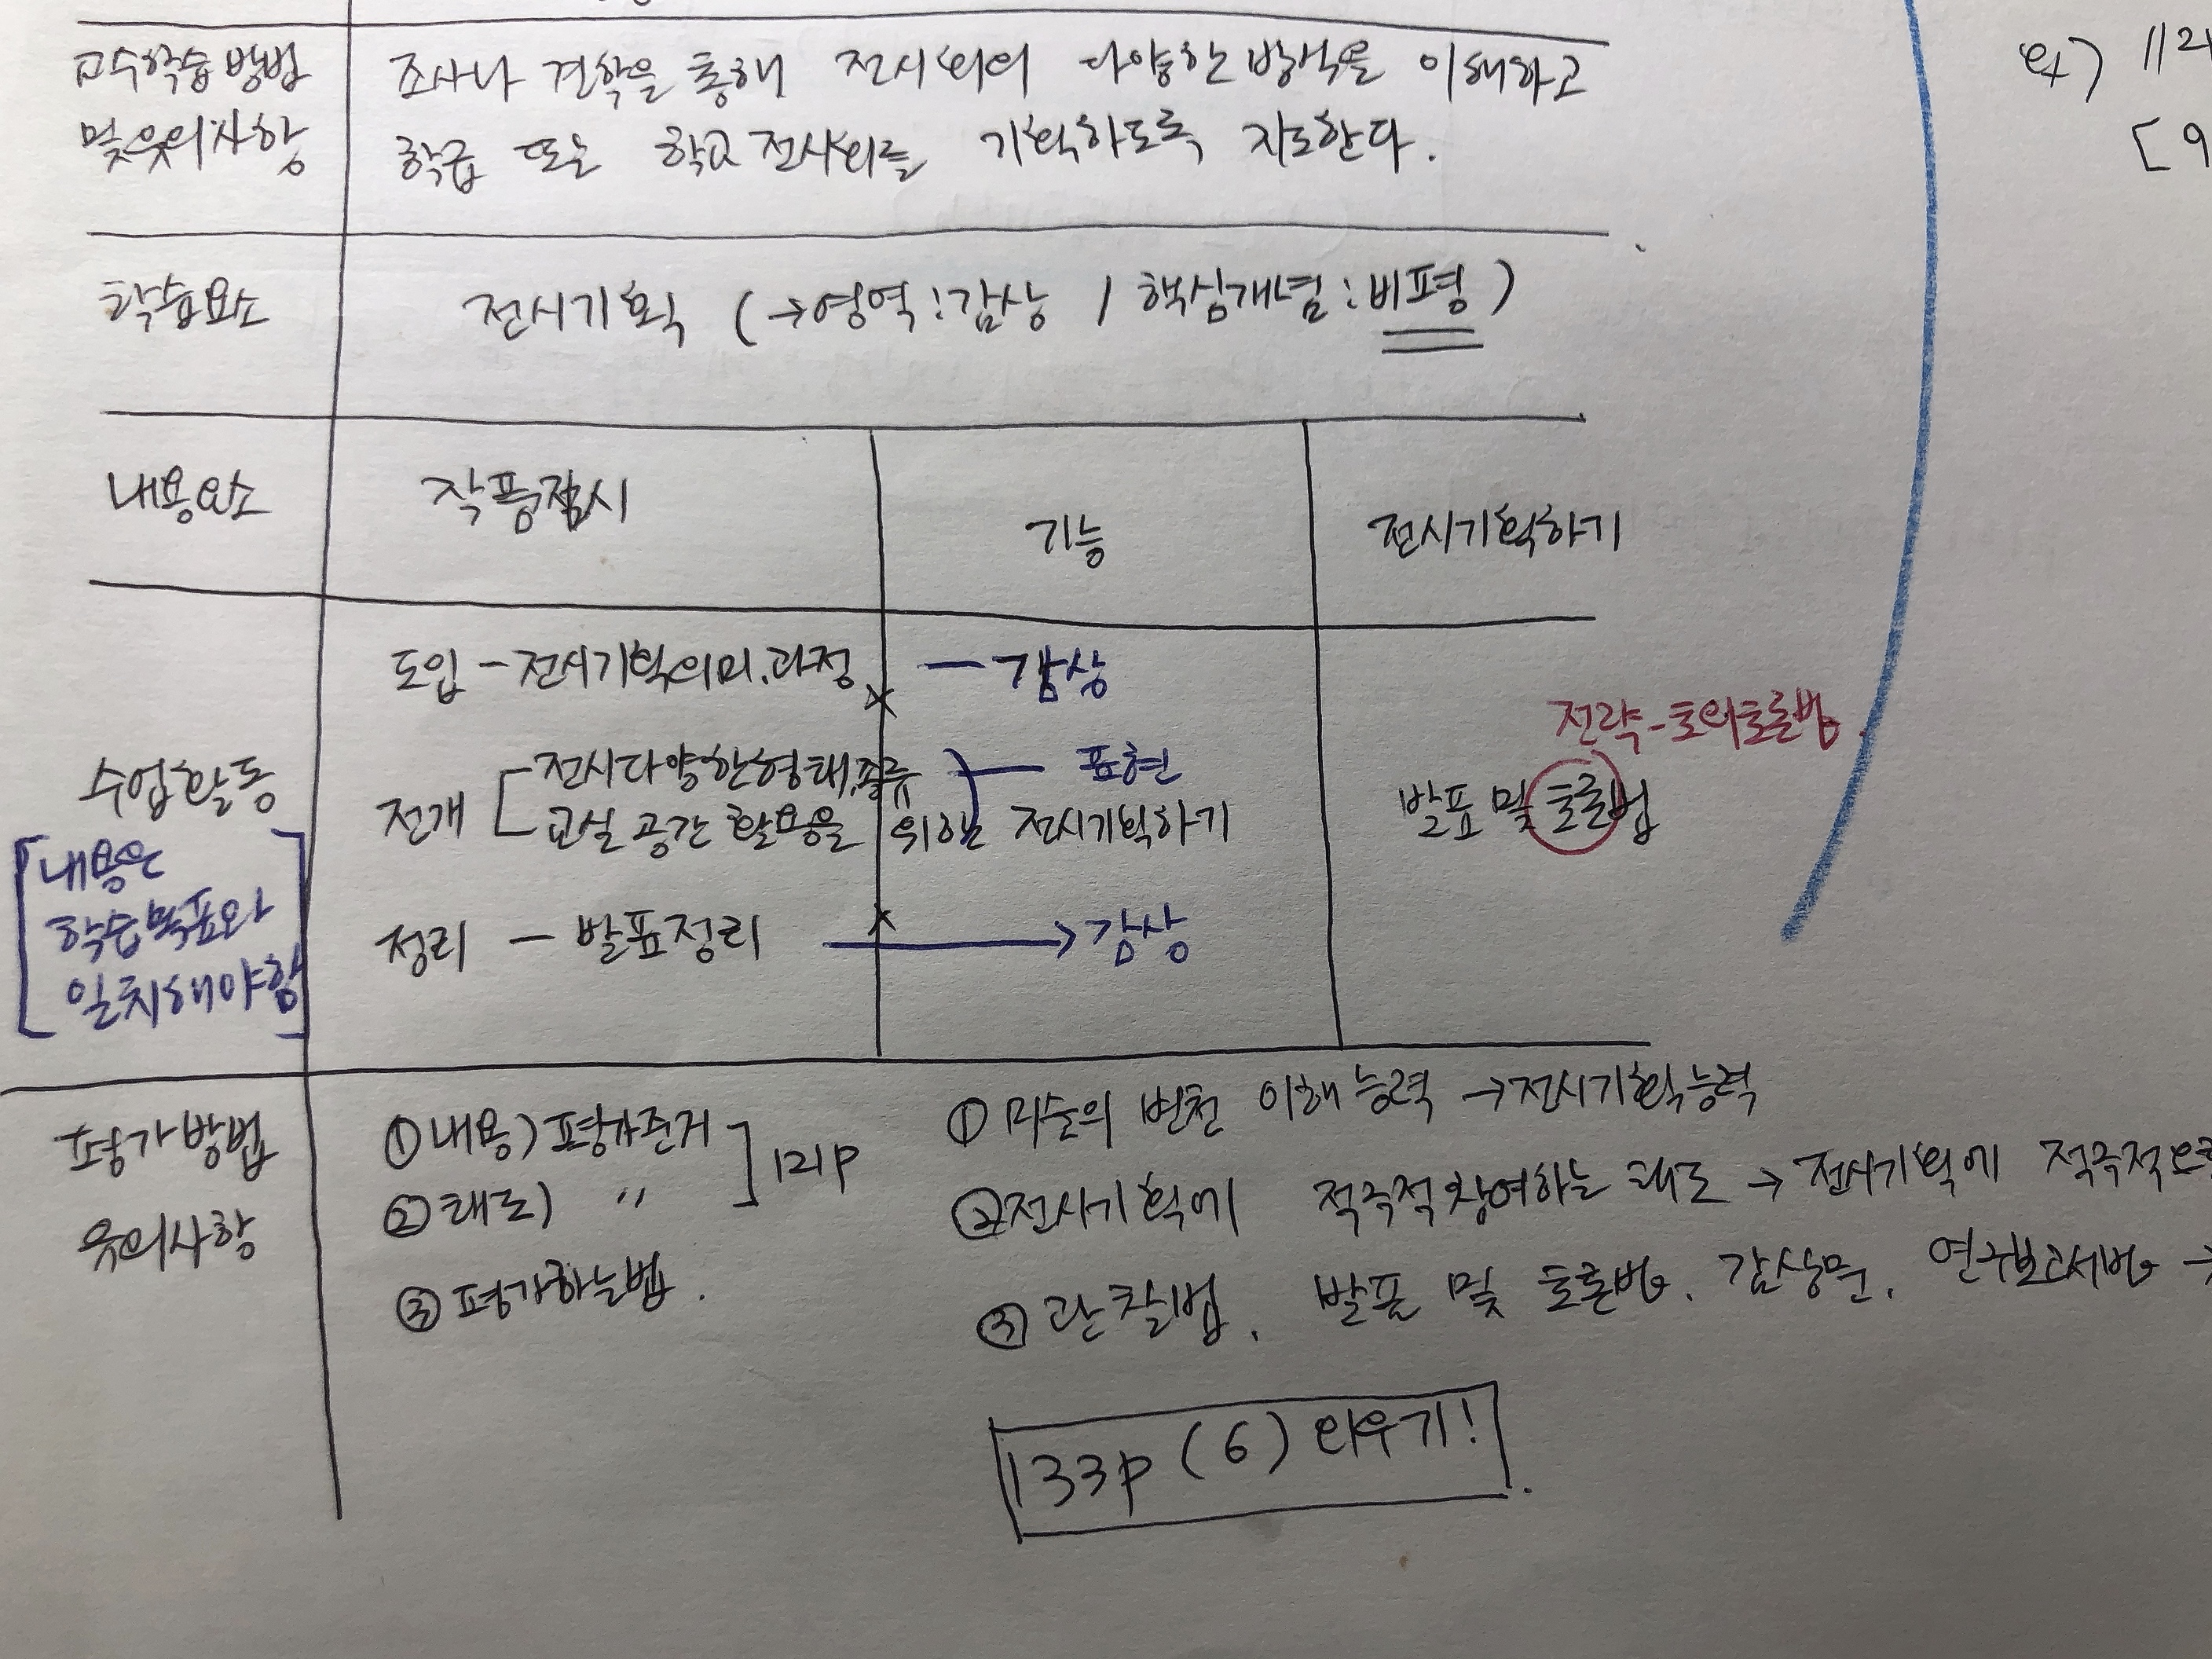 교수학습방법 조사나 견학을 통해 전시회의 다양한 방식을 이해하고
및 유의사항 학급 또는 학교 전시회를 기획하도록 지도한다.
ex) 112
[9
학습요소 전시기획 (→영역:감상 / 핵심개념:비평)
내용요소 작품전시 기능 전시기획하기
도입 - 전시기획의미.과정 - 감상
전략-토의토론법.
수업활동 전개 [ 전시다양한형태,종류 - 표현
교실 공간 활용을 위한 전시기획하기
발표 및 토론법
[내용은
학습목표와
일치해야함]
정리 - 발표정리 → 감상
평가방법
유의사항
①내용) 평가준거 ] 121p
②태도) 〃
③평가하는법.
①미술의 변천 이해능력 →전시기획능력
②전시기획에 적극적 참여하는 태도 → 전시기획에 적극적으로
③관찰법, 발표 및 토론법, 감상문, 연구보고서법 →
133p (6) 외우기!